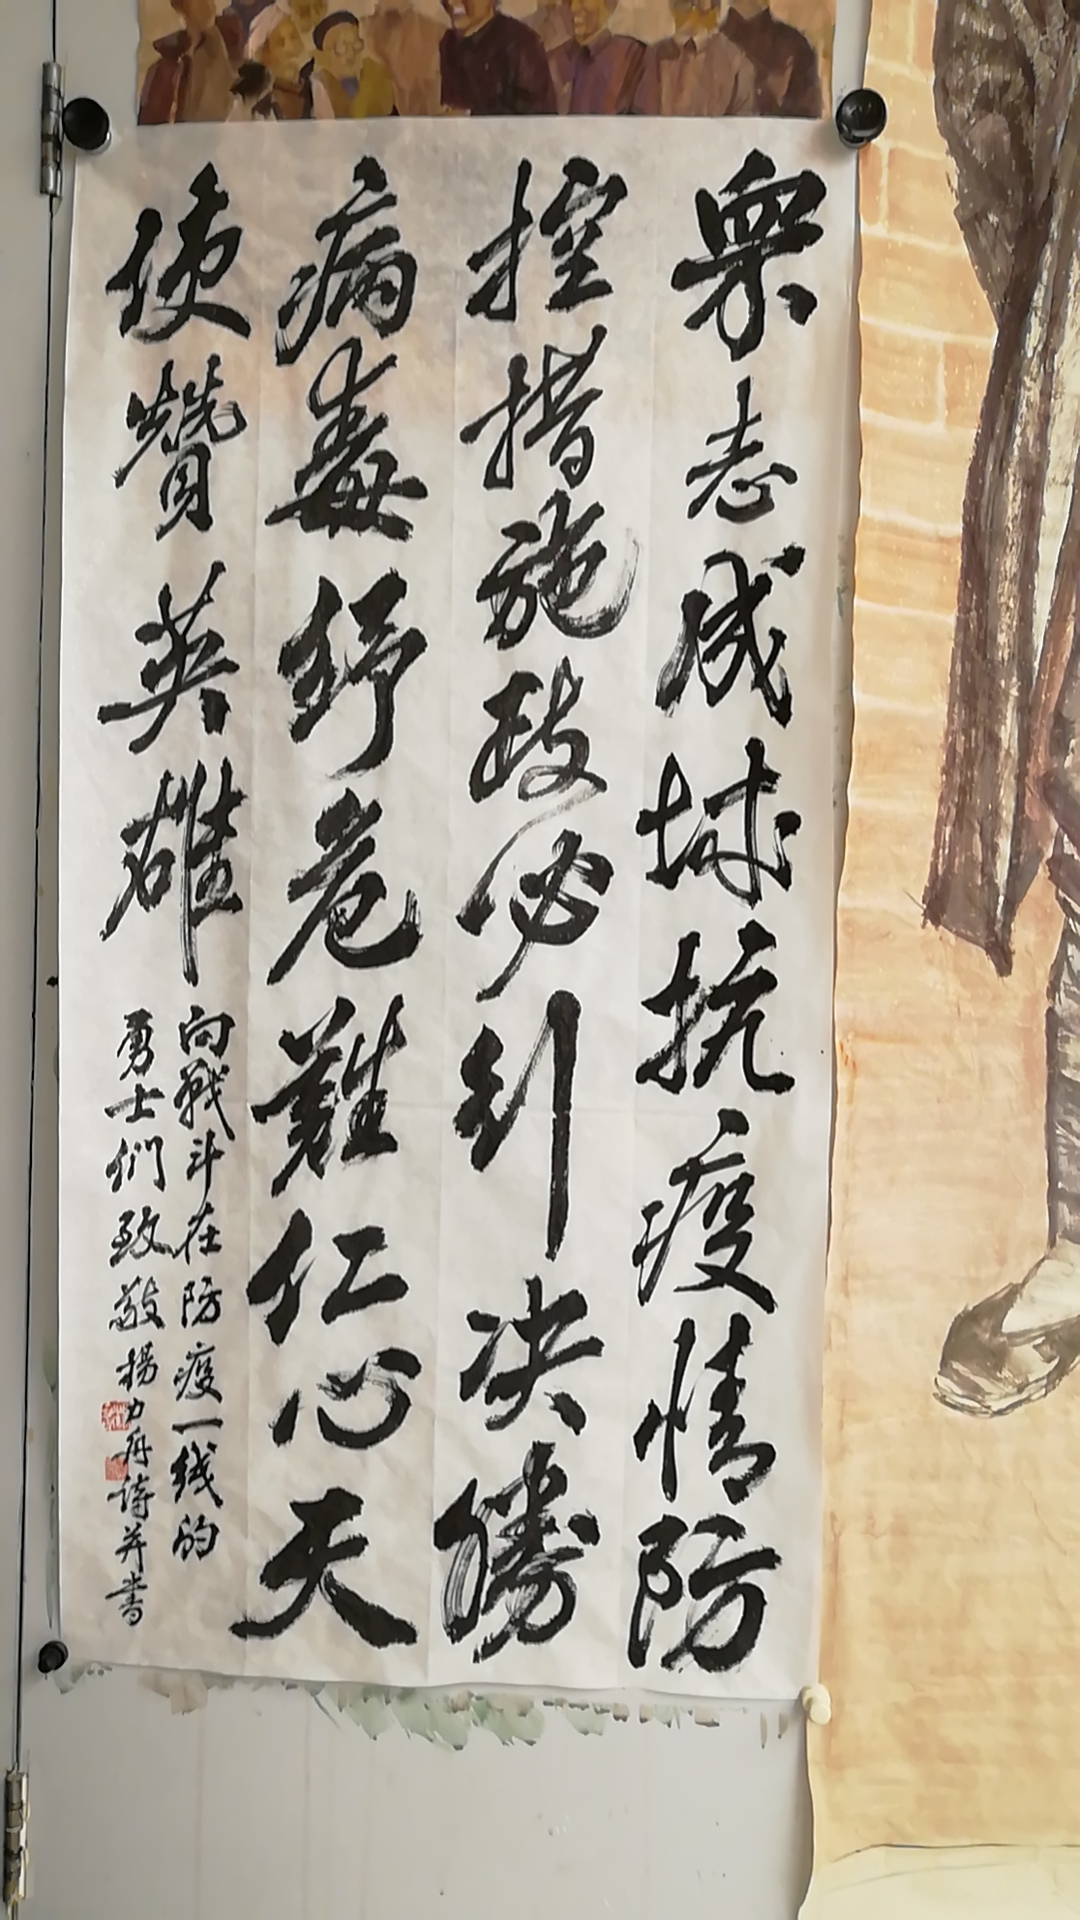 眾志成城抗疫情防
控措施政必引决勝
病毒紓危難仁心天
使贊英雄
向戰斗在防疫一线的
勇士們致敬楊力舟詩并書